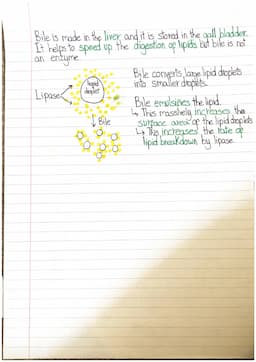 Bile is made in the liver and it is stored in the gall bladder.
It helps to speed up the digestion of lipids but bile is not
an enzyme.
Lipase
lipid
droplet
Bile
Bile converts large lipid droplets
into smaller droplets.
Bile emulsifies the lipid.
↳ This massively increases the
surface area of the lipid droplets
↳ This increases the rate of
lipid breakdown by lipase.